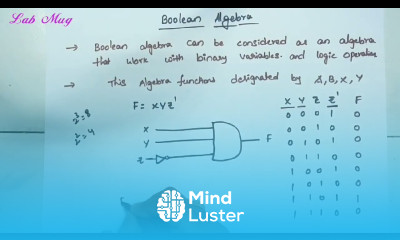 Lab Mug
Boolean Algebra
→ Boolean algebra can be considered as an algebra
that work with binary variables and logic operation
→ This Algebra functions designated by A, B, X, Y
F = XYZ'
2³ = 8
2² = 4
X
Y
Z
F
X Y Z Z' F
0 0 0 1 0
0 0 1 0 0
0 1 0 1 0
0 1 1 0 0
1 0 0 1 0
1 0 1 0 0
1 1 0 1 1
Mind
Luster